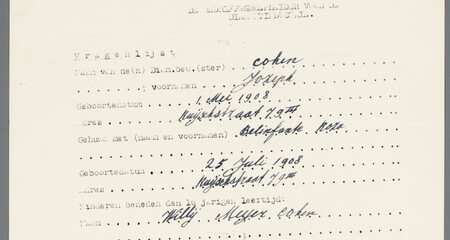 Vragenlijst
Naam van de(n) Dien.bew.(ster) Cohen
" voornamen Jozeph
Geboortedatus 1 Mei 1908
Adres straat 79 III
Gehuwd met (naam en voornamen) Belinfante. Roza
Geboortedatus 25 Juli 1908
Adres straat 79 III
Kinderen beneden den 16 jarigen leertijd:
Naam Willy Meyer Cohen